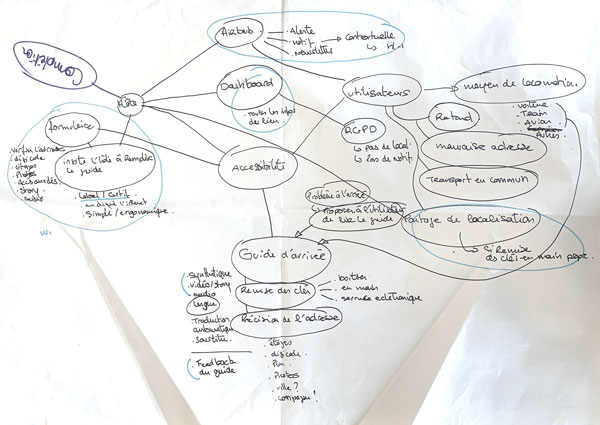 Airbnb
- Alerte
- notif
- newsletter
→ Contextuelle
↳ H-1
Hôte
Dashboard
- Toutes les infos
des lieux
utilisateurs
moyen de locomotion
- voiture
- Train
- Avion
- Autres
Retard
RGPD
- pas de local.
- Pas de notif
mauvaise adresse
Transport en commun
Partage de localisation
↳ si Remise
des clés en main propre
formulaire
- digicode
- étages
- Photos
- story
inciter l'hôte à Remplir
le guide
- Simple / ergonomique
Accessibilité
Problème à l'arrivée
↳ proposer à l'utilisateur
de lire le guide
Guide d'arrivée
- synthétique
- vidéo/story
- audio
Langue
- Traduction
automatique
Remise des clés
- boitier
- en main
- serrure eclétronique
Précision de l'adresse
- étages
- digicode
- Plan
- Photos
- ville ?
- Feedback
du guide